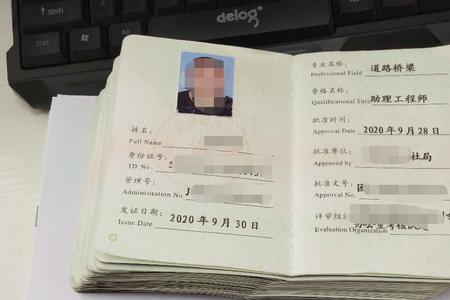 delog
Ctrl
Alt
专业名称:
Professional Field
道路桥梁
资格名称:
Qualificational Title
助理工程师
批准时间:
Approval Date
2020年9月28日
批准单位:
Approved by
社局
批准文号:
Approval No.
评审组
Evaluation Organization
姓名:
Full Name
身份证号:
ID No
管理号:
Administration No.
J
发证日期:
Issue Date
2020年9月30日